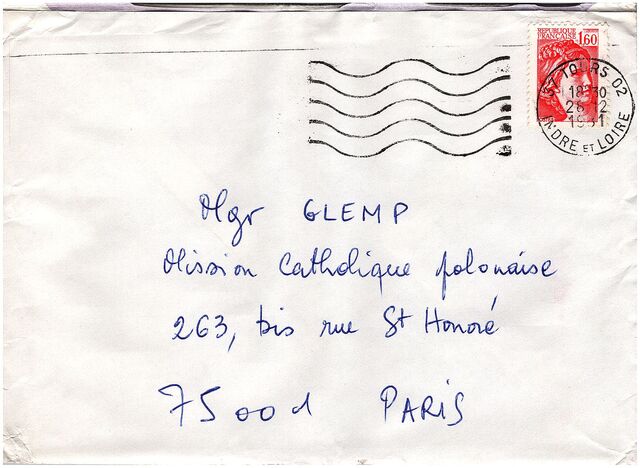 REPUBLIQUE
FRANÇAISE 1,60
37 TOURS 02
18H30
28-12
1981
INDRE ET LOIRE
Mgr GLEMP
Mission Catholique polonaise
263, bis rue St Honoré
75001 PARIS